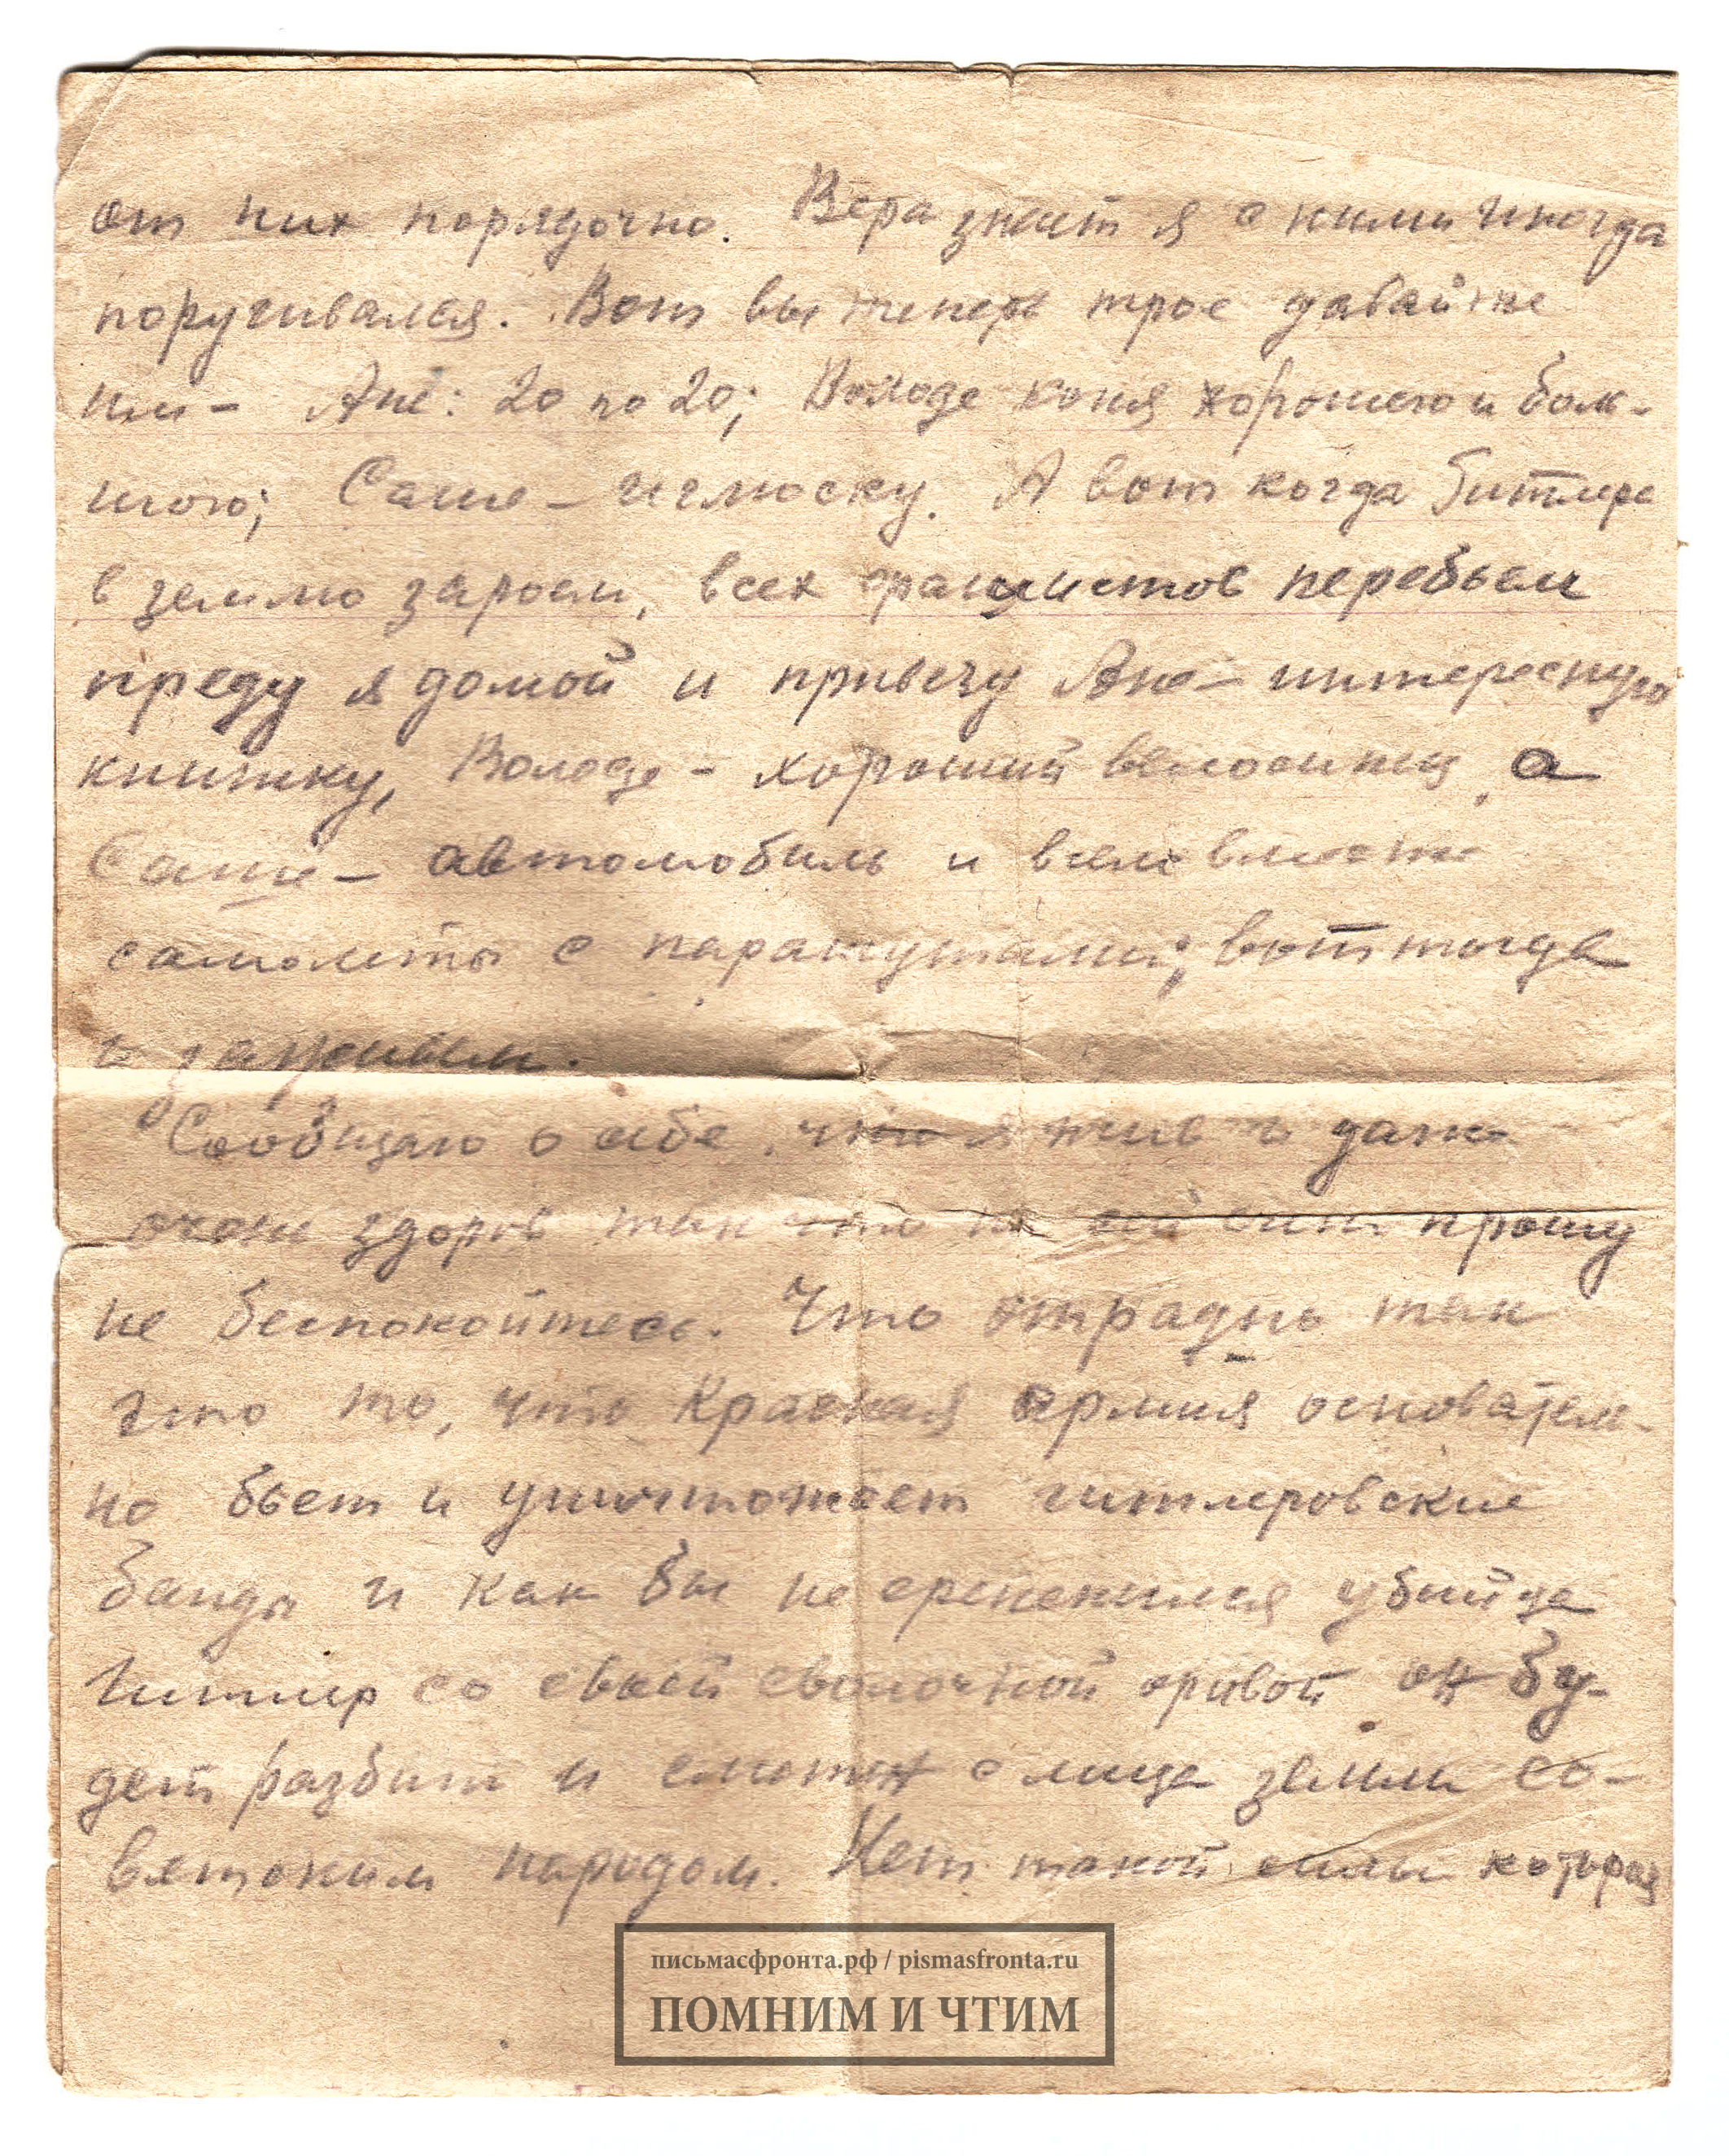 от них порядочно. Вера знает я с ними иногда
поругивался. Вот вы теперь трое давайте
им - Ане: 20 по 20; Володе коня хорошего и боль-
шого; Саше - . А вот когда Гитлера
в землю зароем, всех фашистов перебьем
преду я домой и привезу Ане - интересную
книжку, Володе - хороший велосипед, а
Саше - автомобиль и всем вместе
самолеты с парашутами; вот тогда
и заживем.
Сообщаю о себе, что я жив и даже
очень здоров так что прошу
не беспокойтесь. Что отрадно так
это то, что Красная армия основатель-
но бьет и уничтожает гитлеровские
банды и как бы не убийца
Гитлер со своей сволочной сровой он бу-
дет разбит и сметен с лица земли со-
ветским народом. Нет такой силы которая
письмасфронта.рф / pismasfronta.ru
ПОМНИМ И ЧТИМ